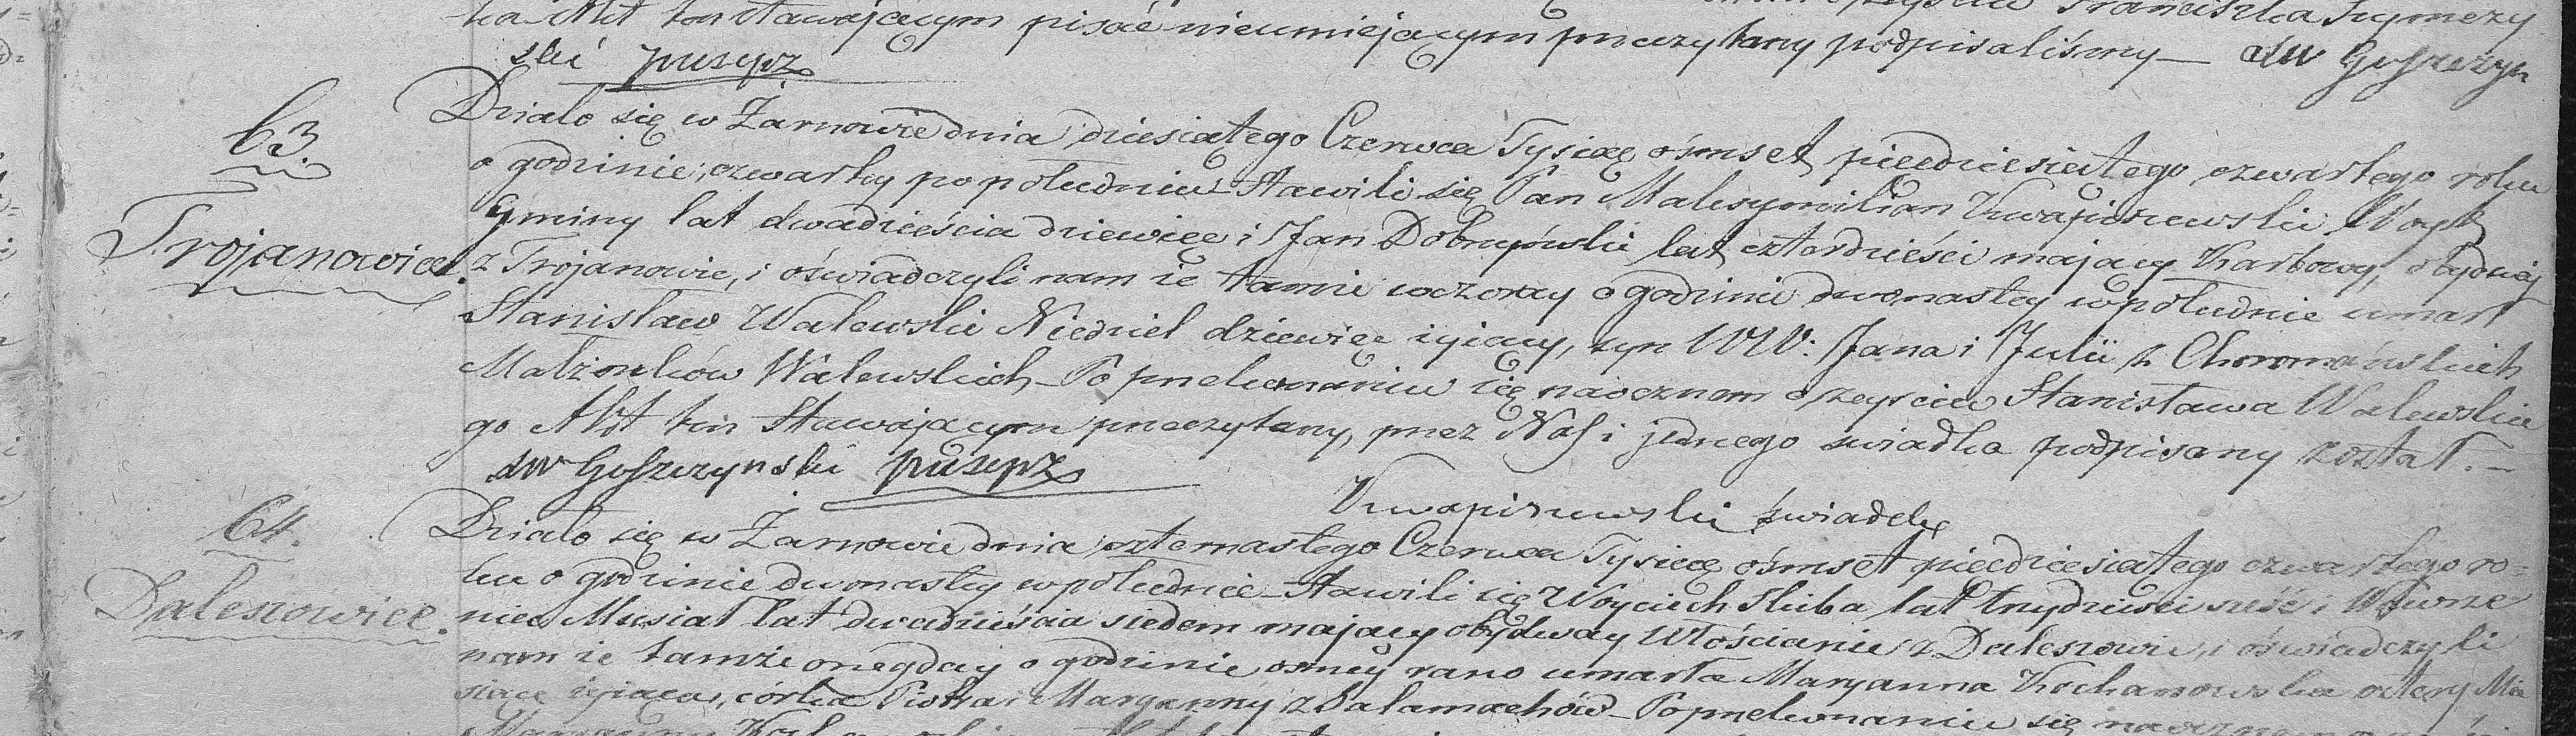 ka Akt ten stawającym pisać nieumiejącym przeczytany podpisaliśmy — Franciszka Szymczy
ski xw Goszczyń
63.
Trojanowice.
Działo się w Żarnowie dnia dziesiątego Czerwca Tysiąc ośmset pięćdziesiątego czwartego roku
o godzinie czwartey popołudniu Stawili się Pan Maksymilian Kwapiszewski Woyt
Gminy lat dwadzieścia dziewięć i Jan Dobrupowski lat czterdzieści maiący Karbowy, obydway
z Trojanowic, i oświadczyli nam że tamże wczoray o godzinie dwunastey wpołudnie umarł
Stanisław Walewski Niedziel dziewięć żyiący, syn WW: Jana i Julii z Chromańskich
Małżonków Walewskich — Po przekonaniu się naocznem o zeyściu Stanisława Walewskie
go Akt ten Stawającym przeczytany, przez Nas i jednego świadka podpisany został. —
xw Goszczynski
Kwapiszewski świadek
64.
Daleszowice.
Działo się w Żarnowie dnia czternastego Czerwca Tysiąc ośmset pięćdziesiątego czwartego ro=
ku o godzinie dwunastey wpołudnie — Stawili się Woyciech Śliba lat trzydzieści sześć i Wawrze
niec Musiał lat dwadzieścia siedem maiący obydway Włościanie z Daleszowic, i oświadczyli
nam że tamże onegday o godzinie osmey rano umarła Maryanna Kochanowska cztery Mie
siące żyiąca, córka Piotra i Maryanny z Salamachów — Po przekonaniu się naocznem
Maryanny